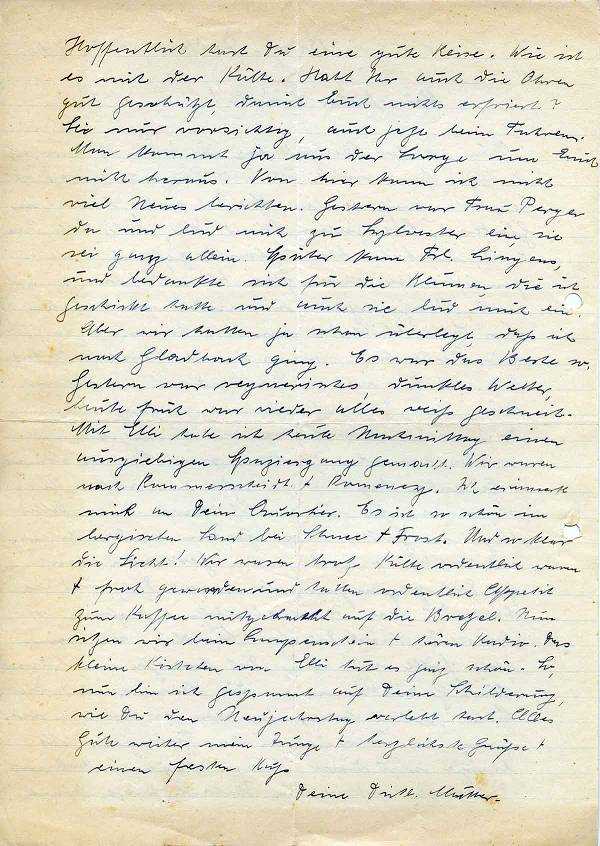 Hoffentlich hast Du eine gute Reise. Wie ist
es mit der Kälte. Habt Ihr auch die Ohren
gut geschützt, damit Euch nichts erfriert?
Sei nur vorsichtig, auch jetzt beim Fahren.
Man kommt ja aus der Sorge um Euch
nicht heraus. Von hier kann ich nicht
viel Neues berichten. Gestern war Frau Perger
da und lud mich zu Sylvester ein, sie
sei ganz allein. Später kam Frl.
und bedankte sich für die Blumen, die ich
geschickt hatte und auch sie lud mich ein.
Aber wir hatten ja schon überlegt, daß ich
nach Gladbach ging. Es war das Beste so.
Gestern war regnerisches, dunkles Wetter,
heute früh war wieder alles weiß geschneit.
Mit Elli habe ich heute Nachmittag einen
ausgiebigen Spaziergang gemacht. Wir waren
nach Rommerscheidt + Romaney. Ich erinnerte
mich an Dein Quartier. Es ist so schön im
bergischen Land bei Schnee + Frost. Und so klar
die Sicht! Wir waren trotz Kälte ordentlich warm
+ froh geworden und hatten ordentlich Appetit
zum Kaffee mitgebracht auf die Brezel. Nun
sitzen wir beim Lampenschein + hören Radio. Das
kleine Kästchen von Elli tut es ganz schön. So,
nun bin ich gespannt auf Deine Schilderung,
wie Du den Neujahrstag verlebt hast. Alles
Gute weiter mein Junge + herzlichste Grüße +
einen festen Kuß
Deine Dich. Mutter.